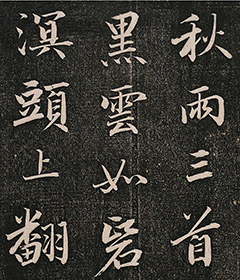 秋雨三首
黒雲如
溟頭上翻